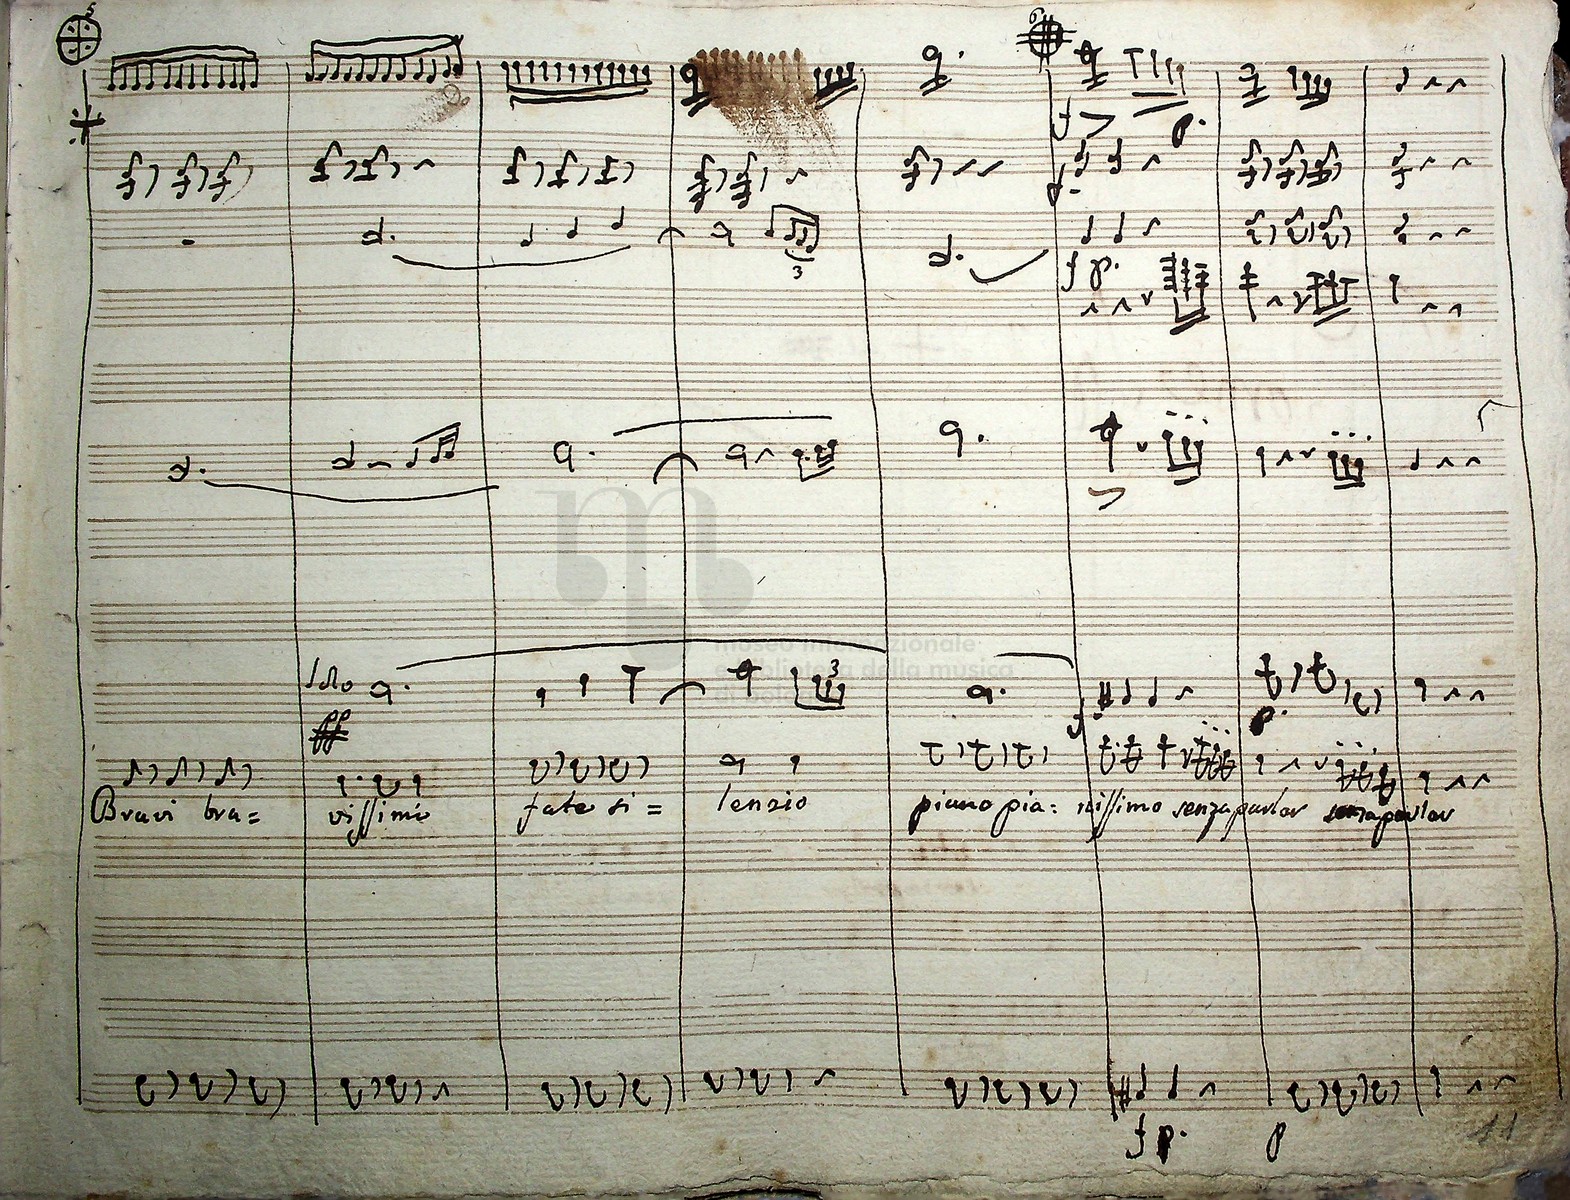 5
6
f p.
f
3
f p.
museo internazionale
e biblioteca della musica
Solo
3
ff
f p.
Bravi bra= vissimi fate si= lenzio piano pia: nissimo senza parlar senza parlar
f p. p
11